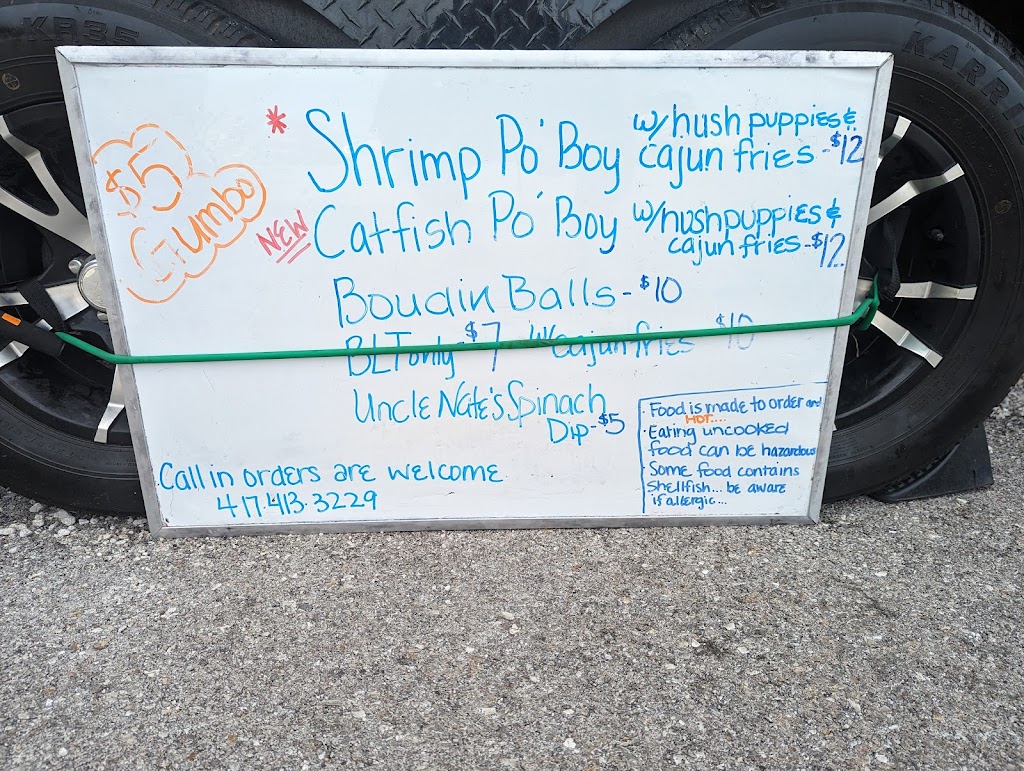 KR35
KARRI
$5
Gumbo
* Shrimp Po' Boy w/hush puppies &
cajun fries - $12
NEW Catfish Po' Boy w/hushpuppies &
cajun fries - $12
Boudin Balls - $10
BLT only $7 w/cajun fries $10
Uncle Nate's Spinach
Dip - $5
Call in orders are welcome
417.413.3229
· Food is made to order and
HOT....
· Eating uncooked
food can be hazardous
· Some food contains
Shellfish... be aware
if allergic...